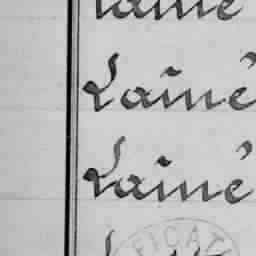 Lainé
Lainé
Lainé
FICAT